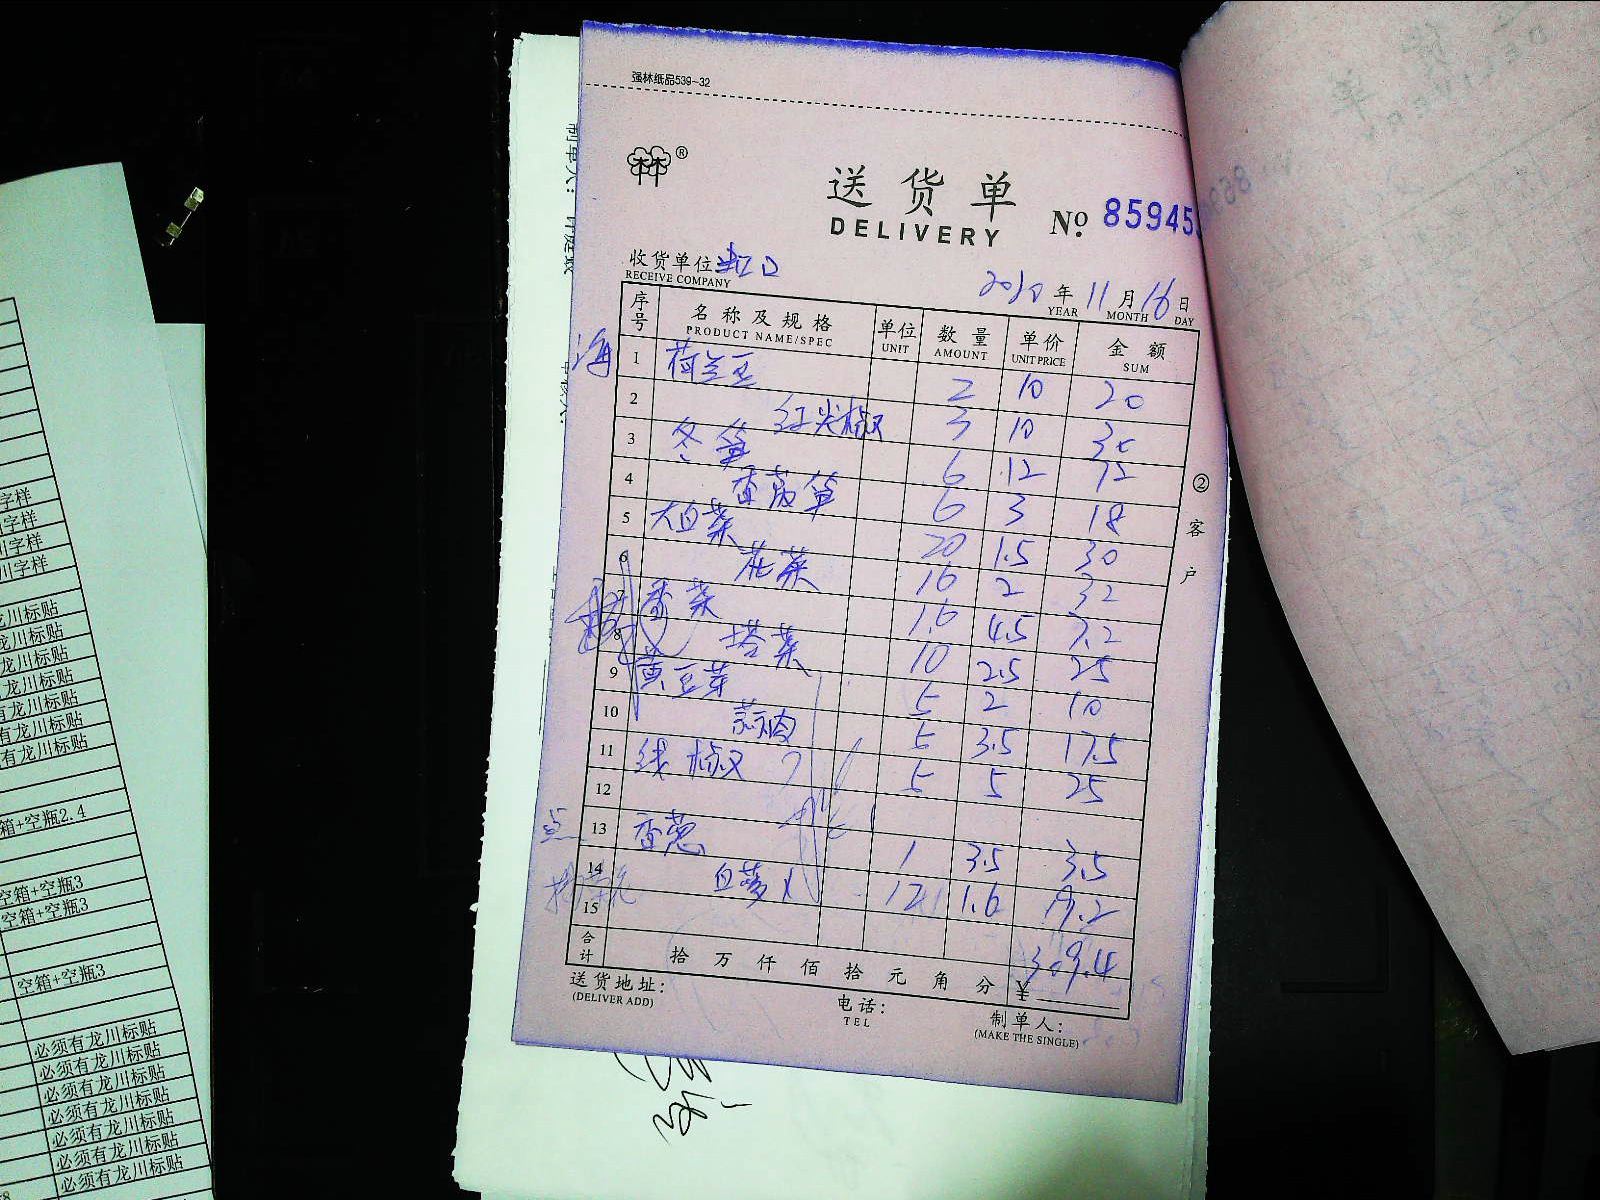 强林纸品539-32
®
送货单
DELIVERY
№ 85945
收货单位 虹口
RECEIVE COMPANY
2020 年 11 月 16 日
YEAR MONTH DAY
序号 名称及规格 单位 数量 单价 金额
PRODUCT NAME/SPEC UNIT AMOUNT UNIT PRICE SUM
海 1 荷兰豆 2 10 20
2 红尖椒 3 10 30
3 冬笋 6 12 72
4 香莴笋 6 3 18
5 大白菜 20 1.5 30
6 花菜 16 2 32
7 香菜 1.6 4.5 7.2
8 塔菜 10 2.5 25
9 黄豆芽 5 2 10
10 蒜肉 5 3.5 17.5
11 线椒 5 5 25
12
点 13 香葱 1 3.5 3.5
14 白萝卜 12 1.6 19.2
15
合计 拾 万 仟 佰 拾 元 角 分 ¥ 309.4
送货地址:
(DELIVER ADD)
电话:
TEL
制单人:
(MAKE THE SINGLE)
②客户
制单人:
字样
字样
川字样
川字样
龙川标贴
龙川标贴
龙川标贴
龙川标贴
有龙川标贴
有龙川标贴
有龙川标贴
箱+空瓶2.4
空箱+空瓶3
空箱+空瓶3
空箱+空瓶3
必须有龙川标贴
必须有龙川标贴
必须有龙川标贴
必须有龙川标贴
必须有龙川标贴
必须有龙川标贴
必须有龙川标贴